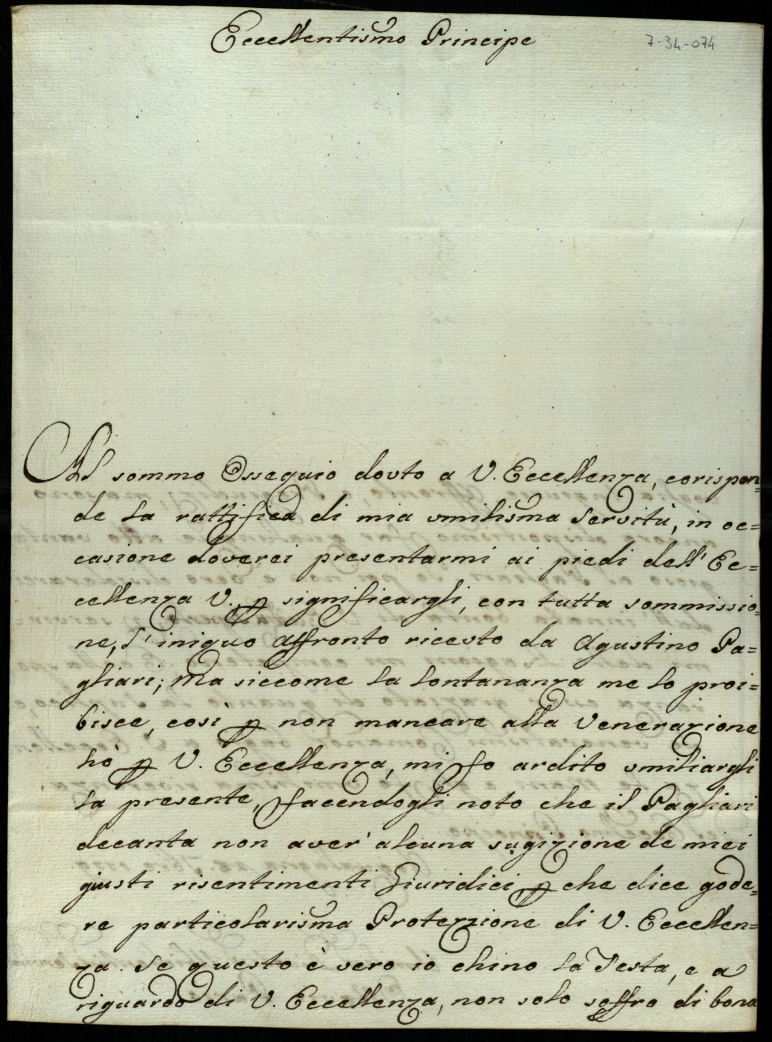 Eccellentismo Principe
7-34-074
Al sommo Ossequio dovto a V. Eccellenza, corispon=
de la rattifica di mia vmilisma Servitù, in oc=
casione doverei presentarmi ai piedi dell' Ec=
cellenza V. ꝑ significargli, con tutta sommissio=
ne, l' iniquo affronto riceuto da Agustino Pa=
gliari; Ma siccome la lontananza me lo proi=
bisce, così ꝑ non mancare alla Venerazione
hò ꝑ V. Eccellenza, mi fo ardito vmiliargli
la presente, facendogli noto che il Pagliari
decanta non aver' alcuna sugizione de miei
giusti risentimenti Giuridici, ꝑ che dice gode=
re particolarisma Protezzione di V. Eccellen=
za. Se questo è vero io chino la Testa, e a
riguardo di V. Eccellenza, non solo soffro di bona